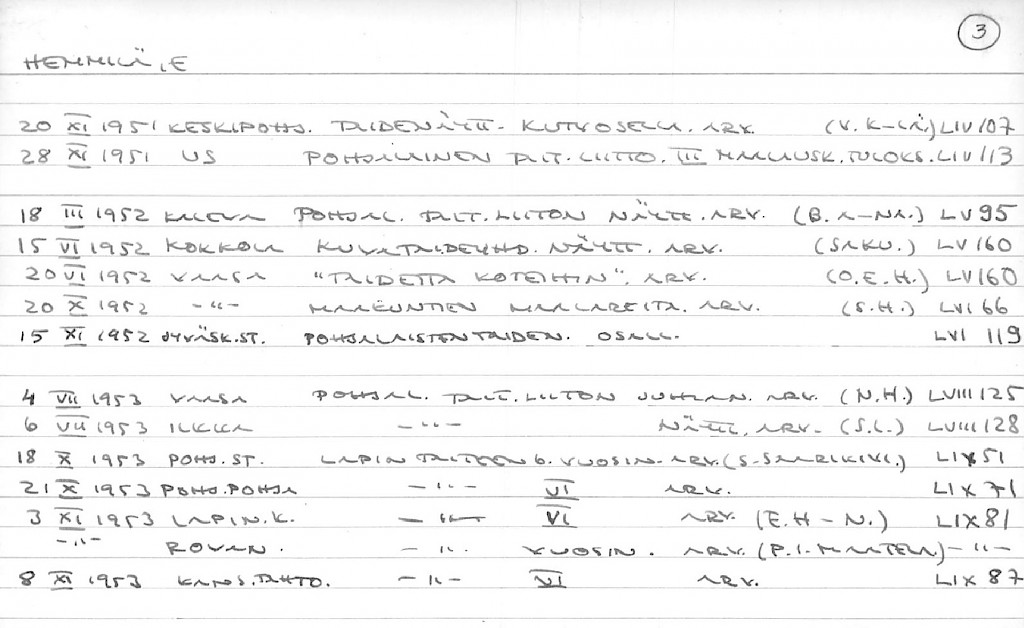 3
HEMMILÄ, E
20 XI 1951 KESKIPOHJ. TAIDENÄYTT. KUTVOSELLA. ARV. (V. K-LÄ.) LIV/07
28 XI 1951 US POHJALAINEN TAIT. LIITTO. III MAALAUSK. TULOKS. LIV/13
18 III 1952 KALEVA POHJAL. TAIT. LIITON NÄYTT. ARV. (B. A-NA.) LV 95
15 VI 1952 KOKKOLA KUVATAIDEYHD. NÄYTT. ARV. (SAKU.) LV 160
20 VI 1952 VAASA "TAIDETTA KOTEIHIN". ARV. (O.E.H.) LV160
20 X 1952 -"- MAALAREITA. ARV. (S.H.) LVI 66
15 XI 1952 JYVÄSK.ST. POHJALAISTEN TAIDEN. OSALL. LVI 119
4 VII 1953 VAASA POHJAL. TAIT. LIITON JUHLAN. ARV. (N.H.) LVIII 125
6 VII 1953 ILKKA -"- NÄYTT. ARV. (S.L.) LVIII 128
18 X 1953 POHJ. ST. LAPIN TAITEEN 6. VUOSIN. ARV. (S-SAARIKIVI.) LIX 51
21 X 1953 POHJ. POHJA -"- VI ARV. LIX 71
3 XI 1953 LAPIN. K. -"- VI ARV. (E.H-N.) LIX 81
-"- ROVAN. -"- VUOSIN. ARV. (P.I-MAATELA) -"-
8 XI 1953 KANS. TAHTO. -"- VI ARV. LIX 87